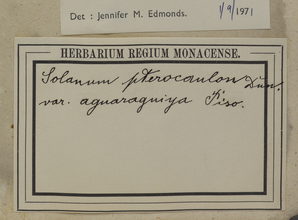 Det : Jennifer M. Edmonds. 1/9/1971
HERBARIUM REGIUM MONACENSE.
Solanum pterocaulon Dun.
var. aguaraquiya Piso.